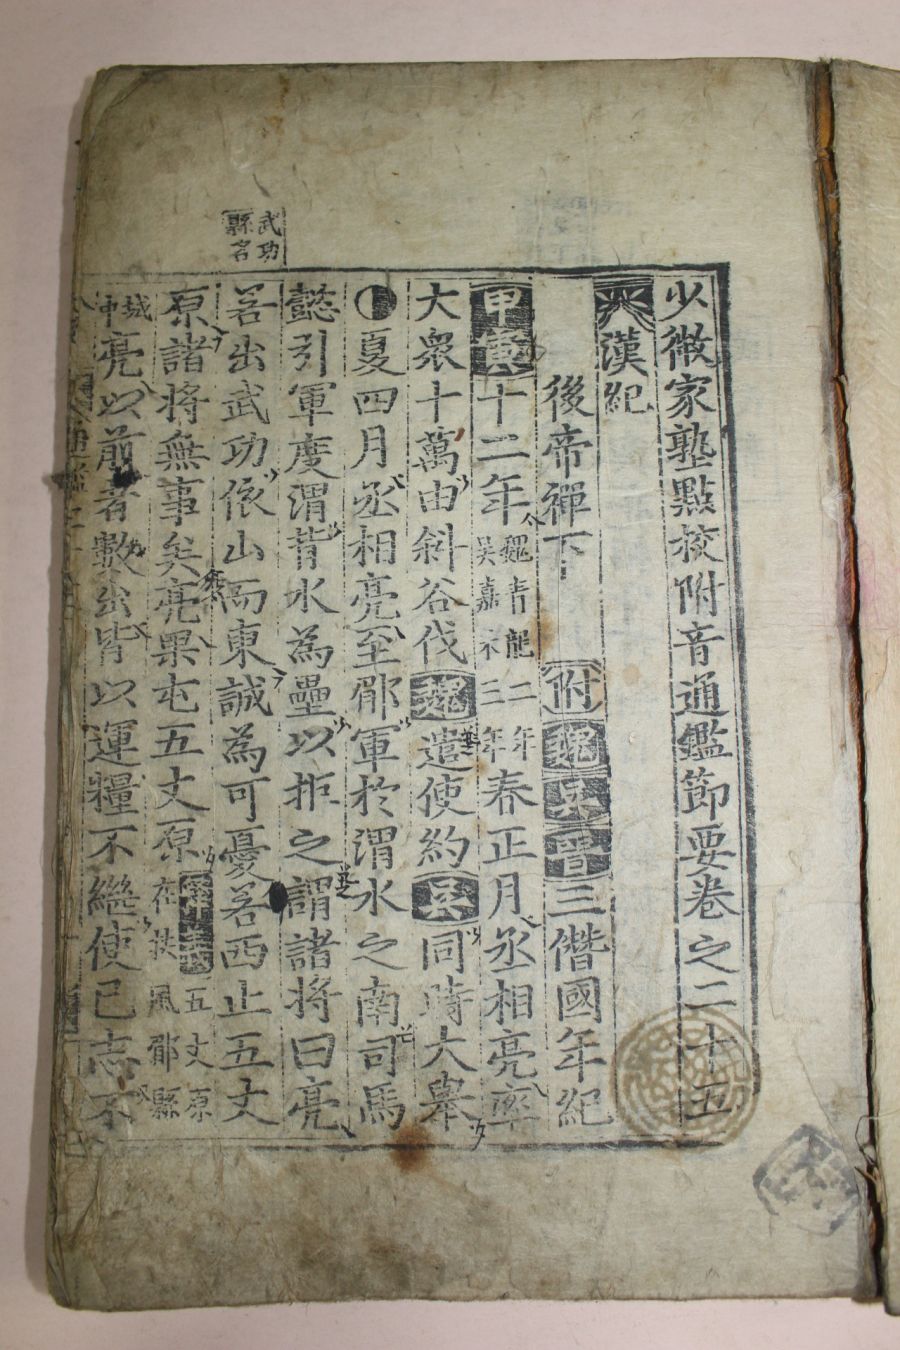 少微家塾點校附音通鑑節要卷之二十五
漢紀
後帝禪下 附魏吳晉三僭國年紀
甲寅十二年魏青龍二年吳嘉禾三年春正月丞相亮率
大衆十萬由斜谷伐魏遣使約吳同時大擧
夏四月丞相亮至郿軍於渭水之南司馬
懿引軍度渭背水為壘以拒之謂諸將曰亮
若出武功依山而東誠為可憂若西止五丈
武功縣名
原諸將無事矣亮果屯五丈原五丈原在扶風郿縣
亮以前者數出皆以運糧不繼使己志不